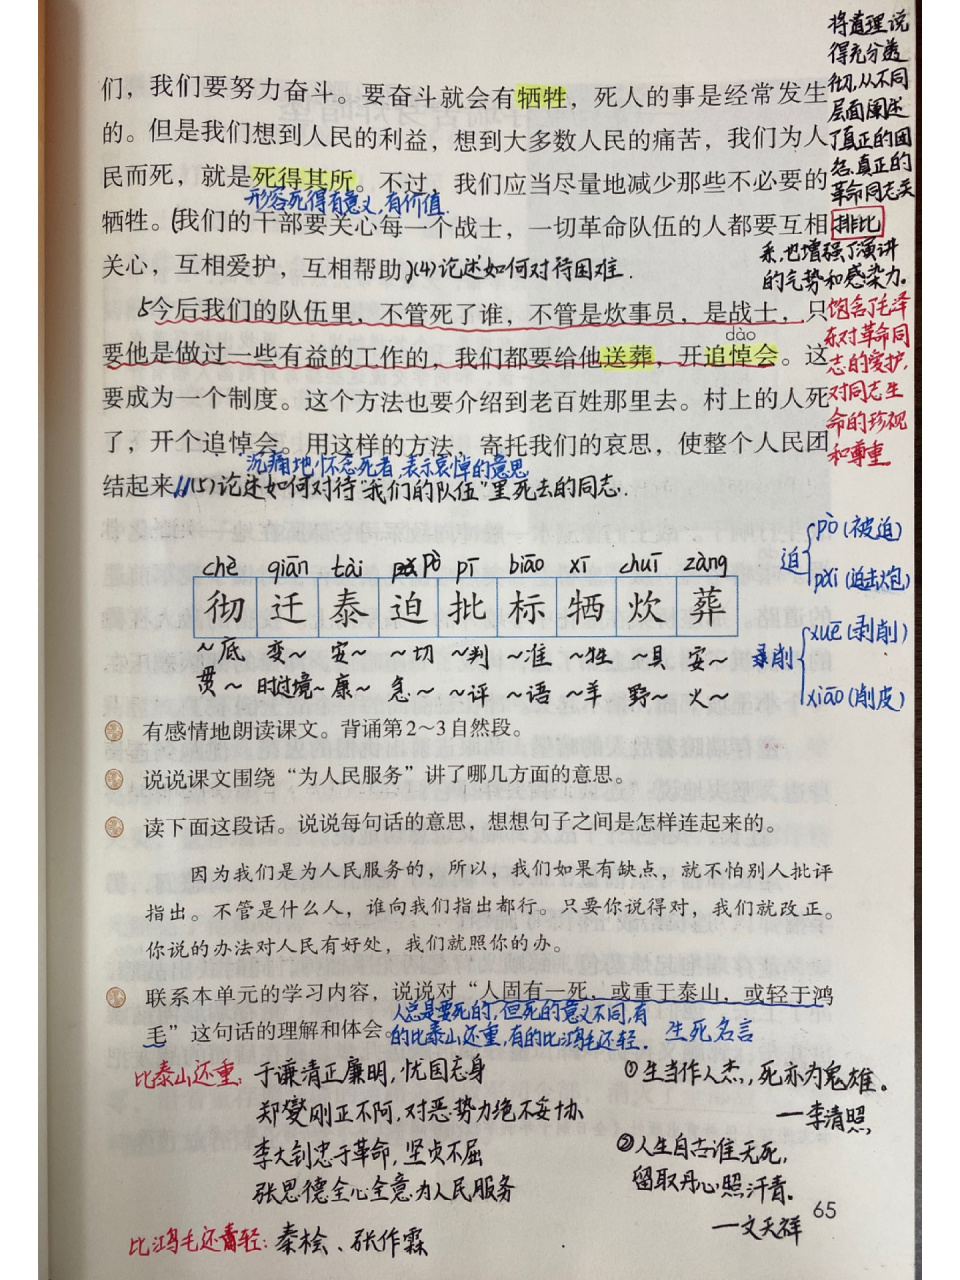 们，我们要努力奋斗。要奋斗就会有牺牲，死人的事是经常发生
的。但是我们想到人民的利益，想到大多数人民的痛苦，我们为人
民而死，就是死得其所。不过，我们应当尽量地减少那些不必要的
形容死得有意义，有价值.
牺牲。(我们的干部要关心每一个战士，一切革命队伍的人都要互相
关心，互相爱护，互相帮助。)(4)论述如何对待困难.
5今后我们的队伍里，不管死了谁，不管是炊事员，是战士，只
dào
要他是做过一些有益的工作的，我们都要给他送葬，开追悼会。这
要成为一个制度。这个方法也要介绍到老百姓那里去。村上的人死
了，开个追悼会。用这样的方法，寄托我们的哀思，使整个人民团
沉痛地怀念死者,表示哀悼的意思
结起来。(5)论述如何对待“我们的队伍”里死去的同志.
将道理说
得充分透
彻,从不同
层面阐述
了真正的困
真正的
革命同志关
排比
系,也增强了演讲
的气势和感染力.
饱含了毛泽
东对革命同
志的爱护,
对同志生
命的珍视
和尊重
chè qiān tài pò pī biāo xī chuī zàng
彻 迁 泰 迫 批 标 牺 炊 葬
～底 变～ 安～ ～切 ～判 ～准 ～牲 ～具 安～
贯～ 时过境～ 康～ 急～ ～评 ～语 ～羊 野～ 火～
迫 pò(被迫)
pǎi(迫击炮)
削 xuē(剥削)
xiāo(削皮)
有感情地朗读课文。背诵第2～3自然段。
说说课文围绕“为人民服务”讲了哪几方面的意思。
读下面这段话。说说每句话的意思，想想句子之间是怎样连起来的。
因为我们是为人民服务的，所以，我们如果有缺点，就不怕别人批评
指出。不管是什么人，谁向我们指出都行。只要你说得对，我们就改正。
你说的办法对人民有好处，我们就照你的办。
联系本单元的学习内容，说说对“人固有一死，或重于泰山，或轻于鸿
毛”这句话的理解和体会。
人总是要死的,但死的意义不同,有
的比泰山还重,有的比鸿毛还轻.
生死名言
比泰山还重: 于谦清正廉明,忧国忘身
郑燮刚正不阿,对恶势力绝不妥协
李大钊忠于革命,坚贞不屈
张思德全心全意为人民服务
比鸿毛还轻: 秦桧、张作霖
①生当作人杰,死亦为鬼雄.
—李清照
②人生自古谁无死,
留取丹心照汗青.
—文天祥
65